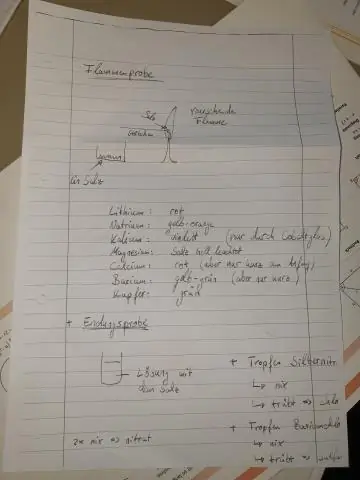 Flammenprobe
Salz
rauschende
Flamme
ein Salz
Lithium: rot
Natrium: gelb-orange
Kalium: violett (nur durch Cobaltglas)
Magnesium: Salz hell leuchtet
Calcium: rot (aber nur kurz am Anfang)
Barium: gelb-grün (aber nur kurz)
Kupfer: grün
+ Endungsprobe
Lösung mit
dem Salz
+ Tropfen Silbernitr
↳ nix
↳ trübt =>
+ Tropfen Bariumchlo
↳ nix
↳ trübt =>
2x nix => nitrat